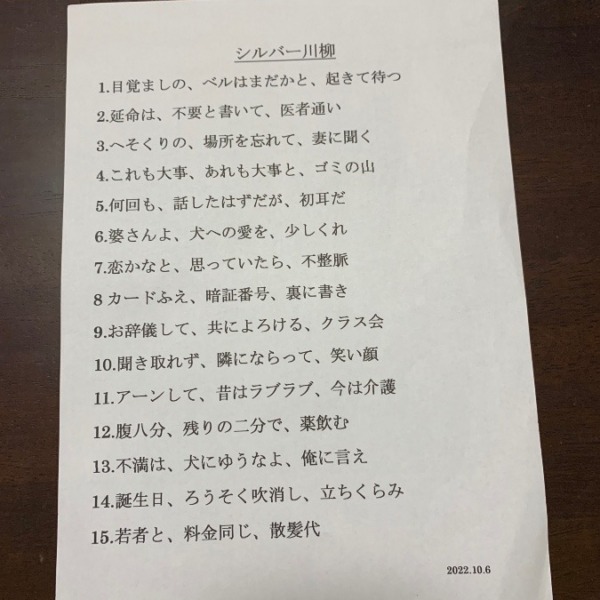 シルバー川柳
1.目覚ましの、ベルはまだかと、起きて待つ
2.延命は、不要と書いて、医者通い
3.へそくりの、場所を忘れて、妻に聞く
4.これも大事、あれも大事と、ゴミの山
5.何回も、話したはずだが、初耳だ
6.婆さんよ、犬への愛を、少しくれ
7.恋かなと、思っていたら、不整脈
8カードふえ、暗証番号、裏に書き
9.お辞儀して、共によろける、クラス会
10.聞き取れず、隣にならって、笑い顔
11.アーンして、昔はラブラブ、今は介護
12.腹八分、残りの二分で、薬飲む
13.不満は、犬にゆうなよ、俺に言え
14.誕生日、ろうそく吹消し、立ちくらみ
15.若者と、料金同じ、散髪代
2022.10.6